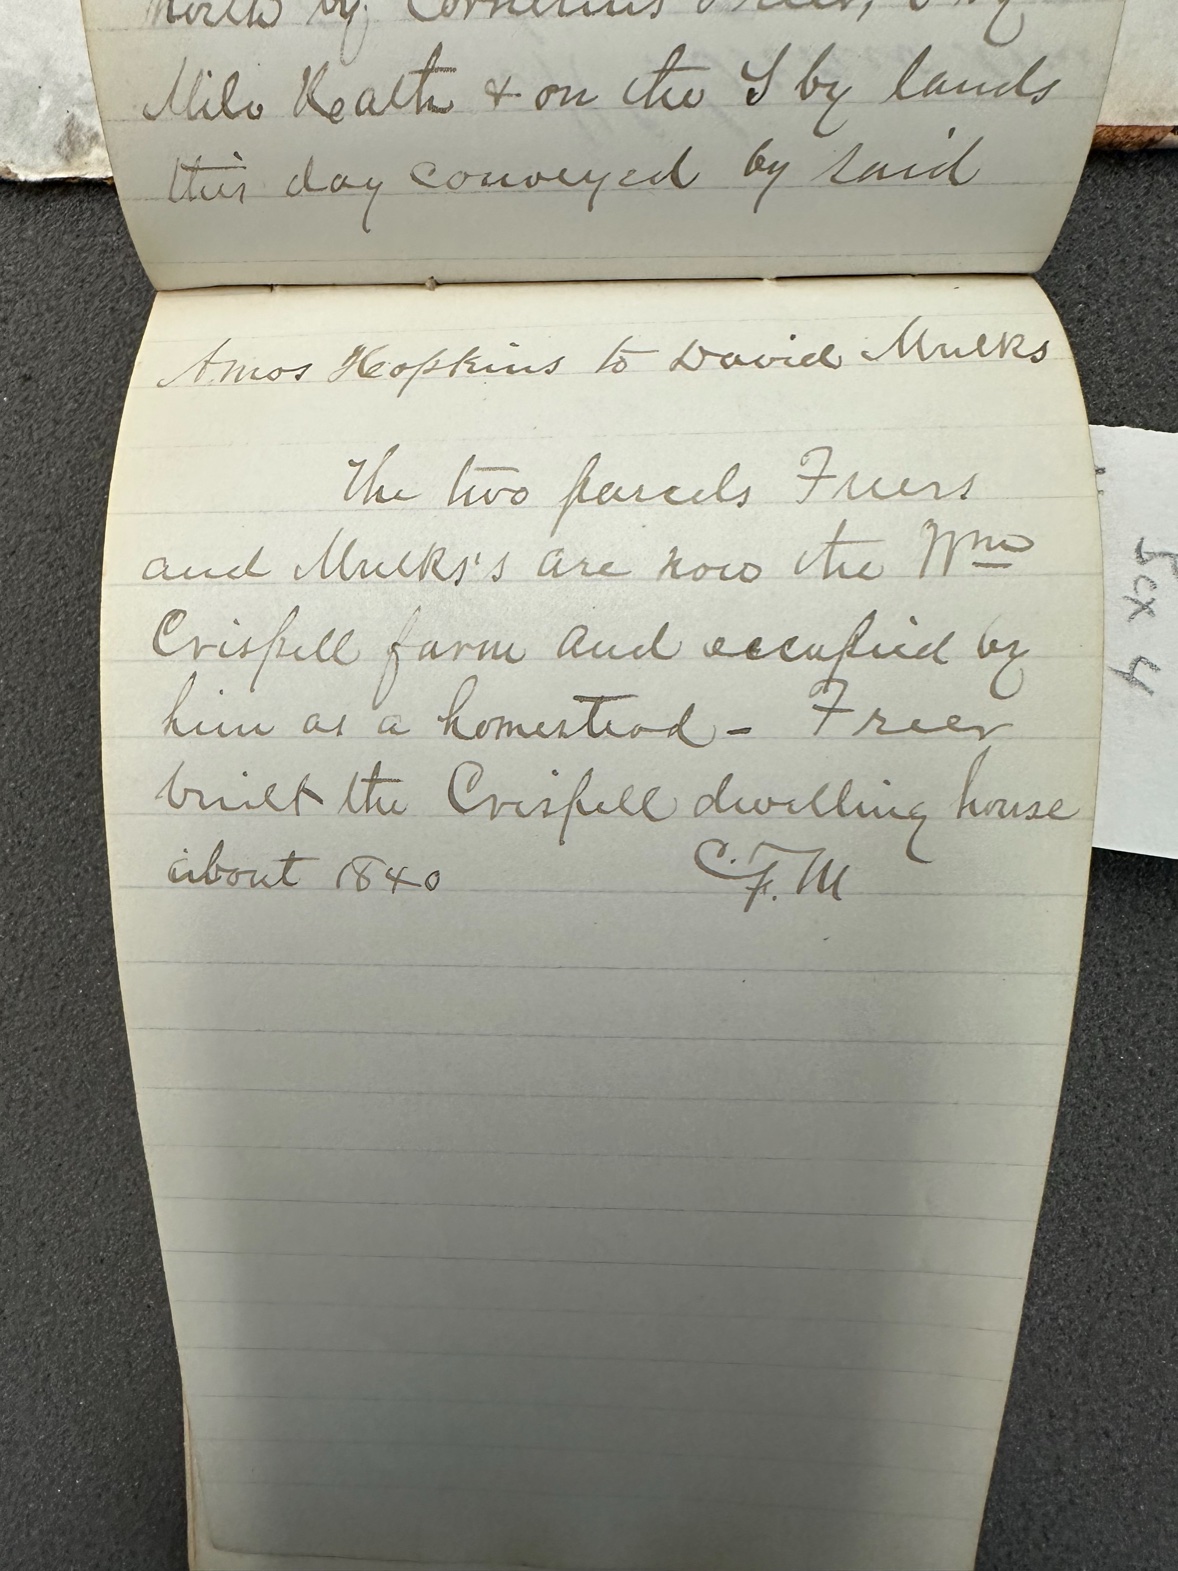 north by Cornelius Freer, E by
Milo Heath & on the S by lands
this day conveyed by said
Amos Hopkins to David Mulks
The two parcels Freers
and Mulks's are now the Wm
Crispell farm and occupied by
him as a homestead - Freer
built the Crispell dwelling house
about 1840 C. F. M
5cx 4